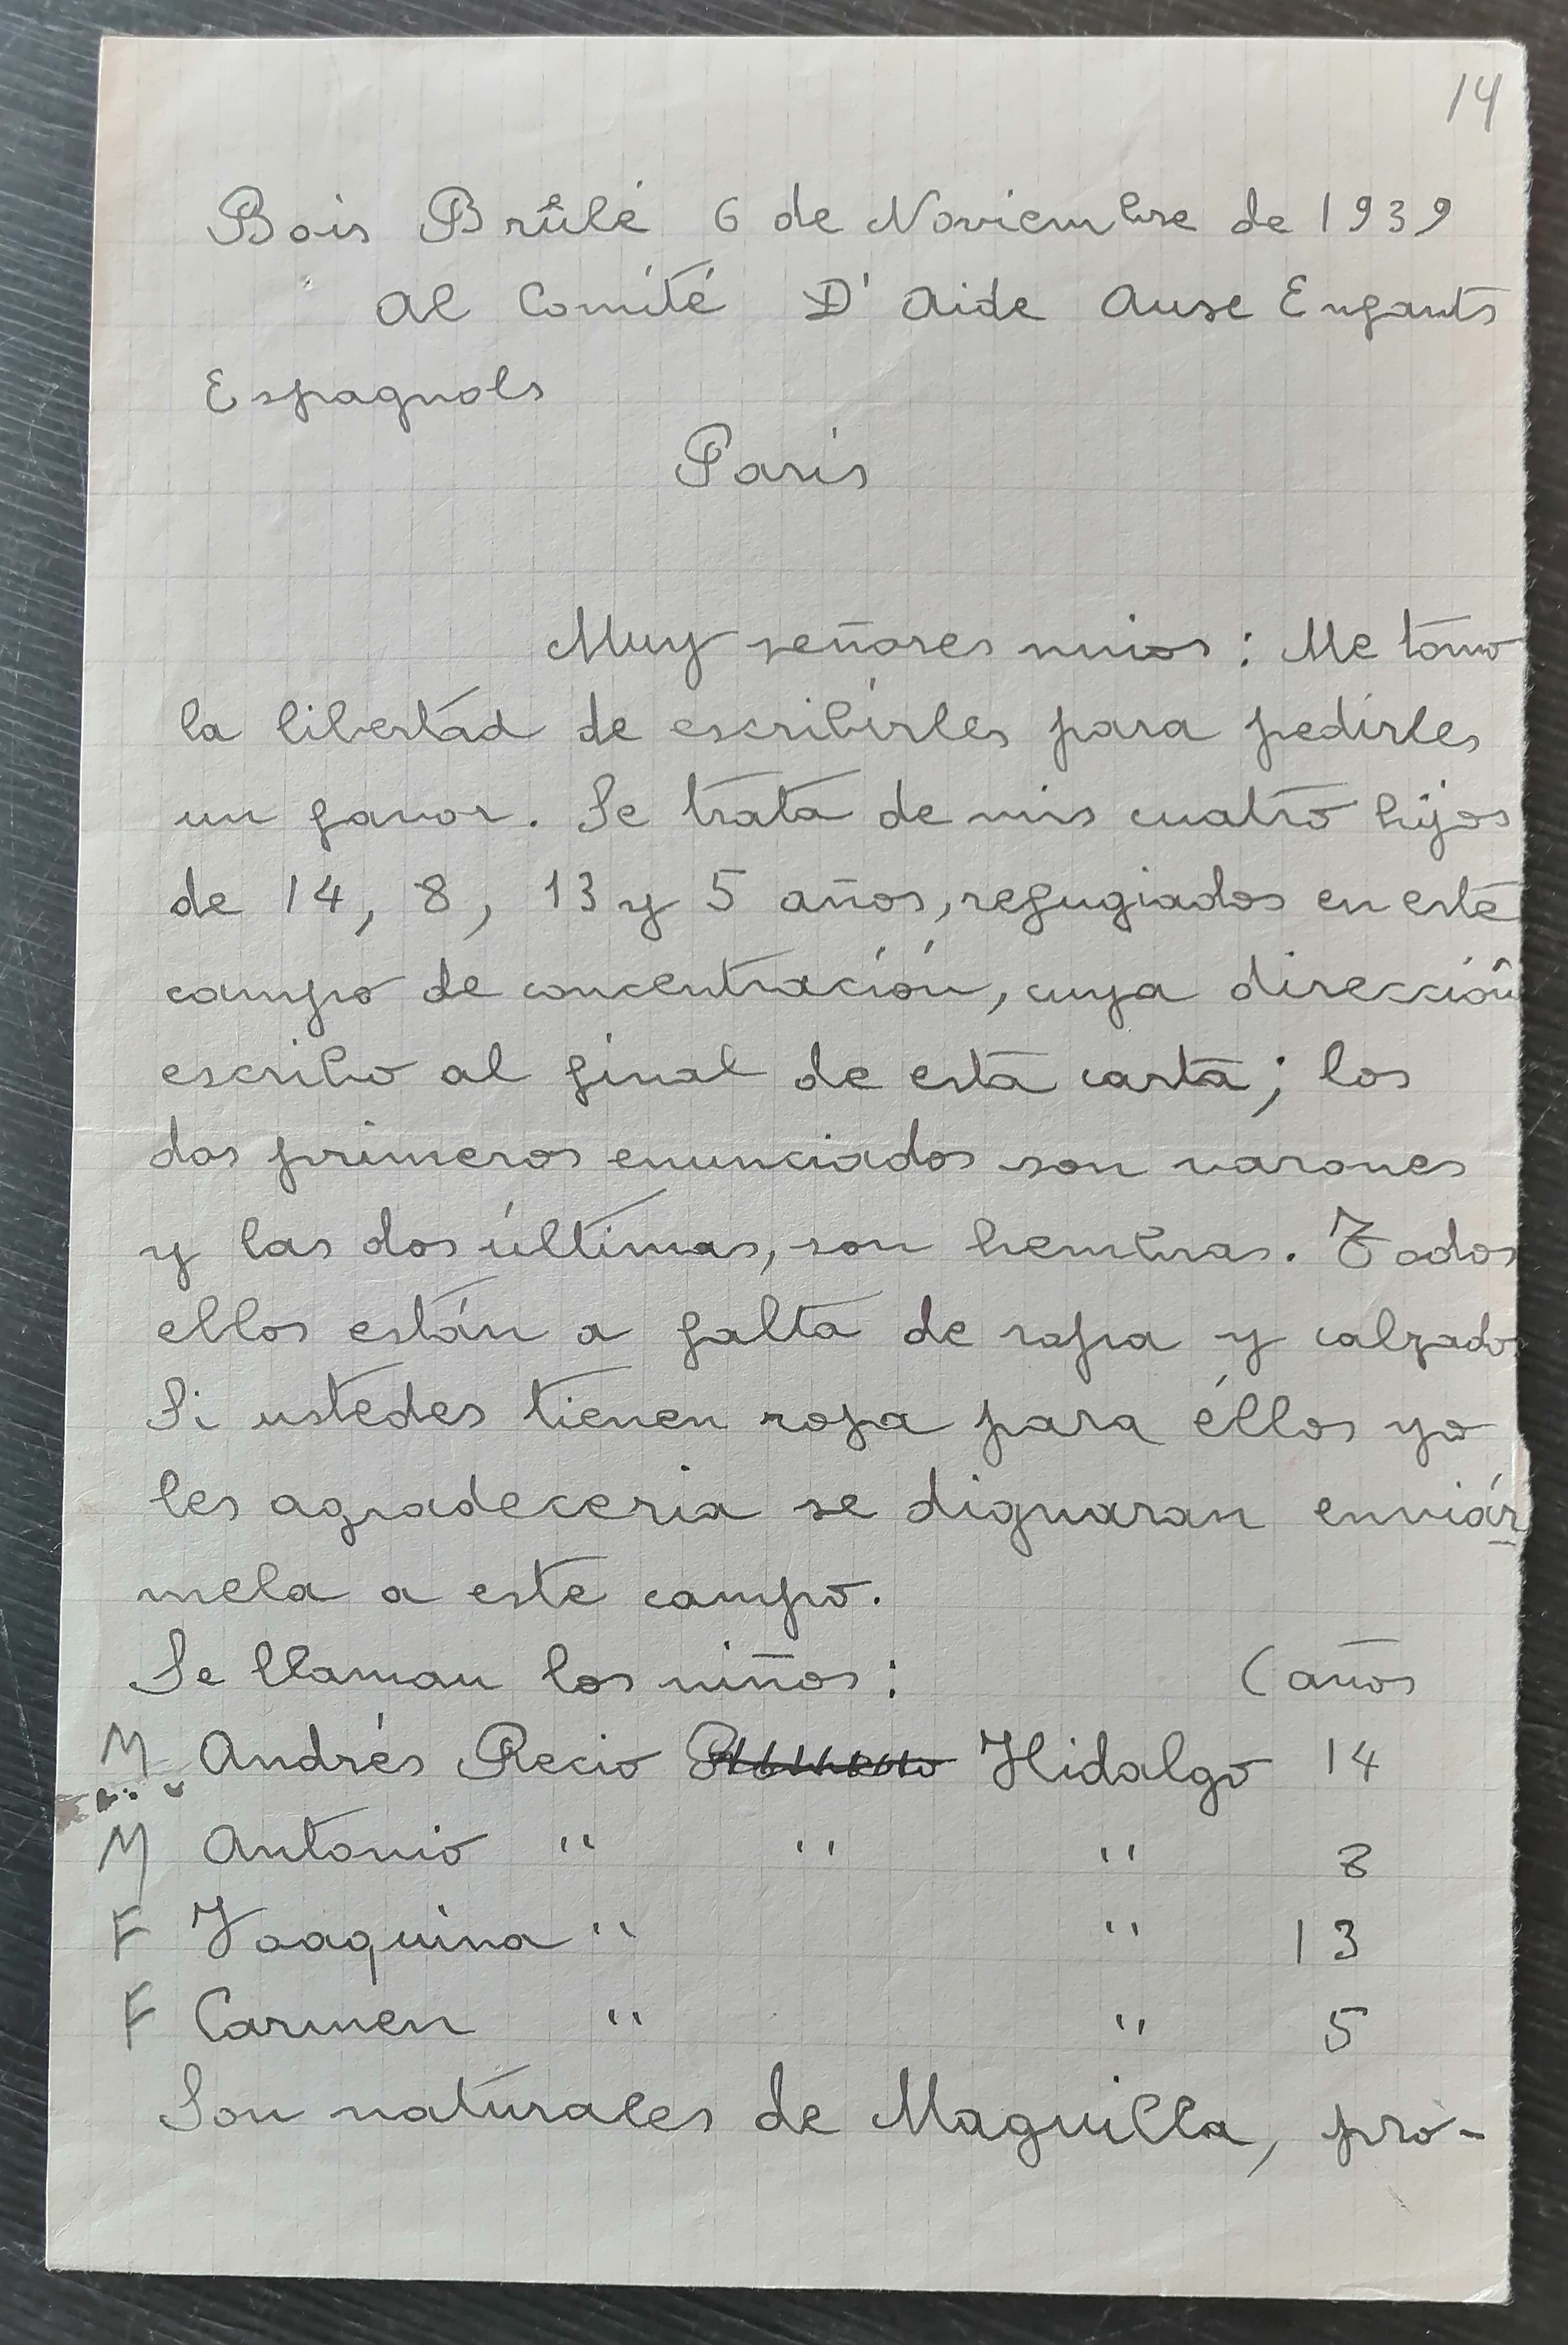 14
Bois Brûlé 6 de Noviembre de 1939
Al Comité D' Aide Auxe Enfants
Espagnols
Paris
Muy señores mios : Me tomo
la libertad de escribirles para pedirles
un favor. Se trata de mis cuatro hijos
de 14, 8, 13 y 5 años, refugiados en este
campo de concentración, cuya dirección
escribo al final de esta carta; los
dos primeros enunciados son varones
y las dos últimas, son hembras. Todos
ellos están a falta de ropa y calzado
Si ustedes tienen ropa para éllos yo
les agradeceria se dignaran enviár
mela a este campo.
Se llaman los niños : (años
M Andrés Recio Hidalgo 14
M Antonio " " " 8
F Joaquina " " 13
F Carmen " " 5
Son naturales de Maguilla, pro-